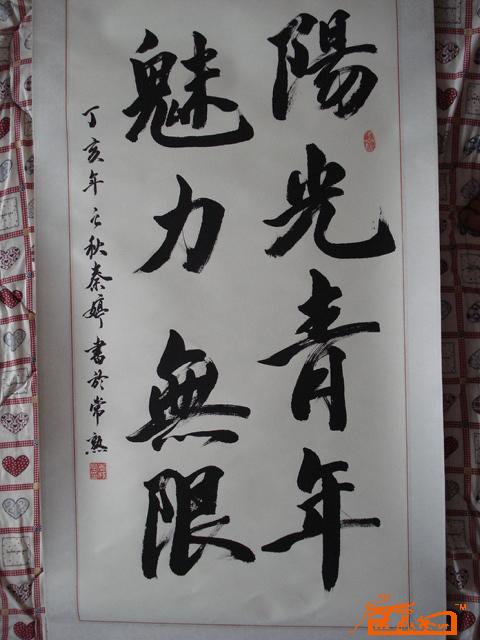 陽光青年
魅力無限
丁亥年之秋秦婷書於常熟